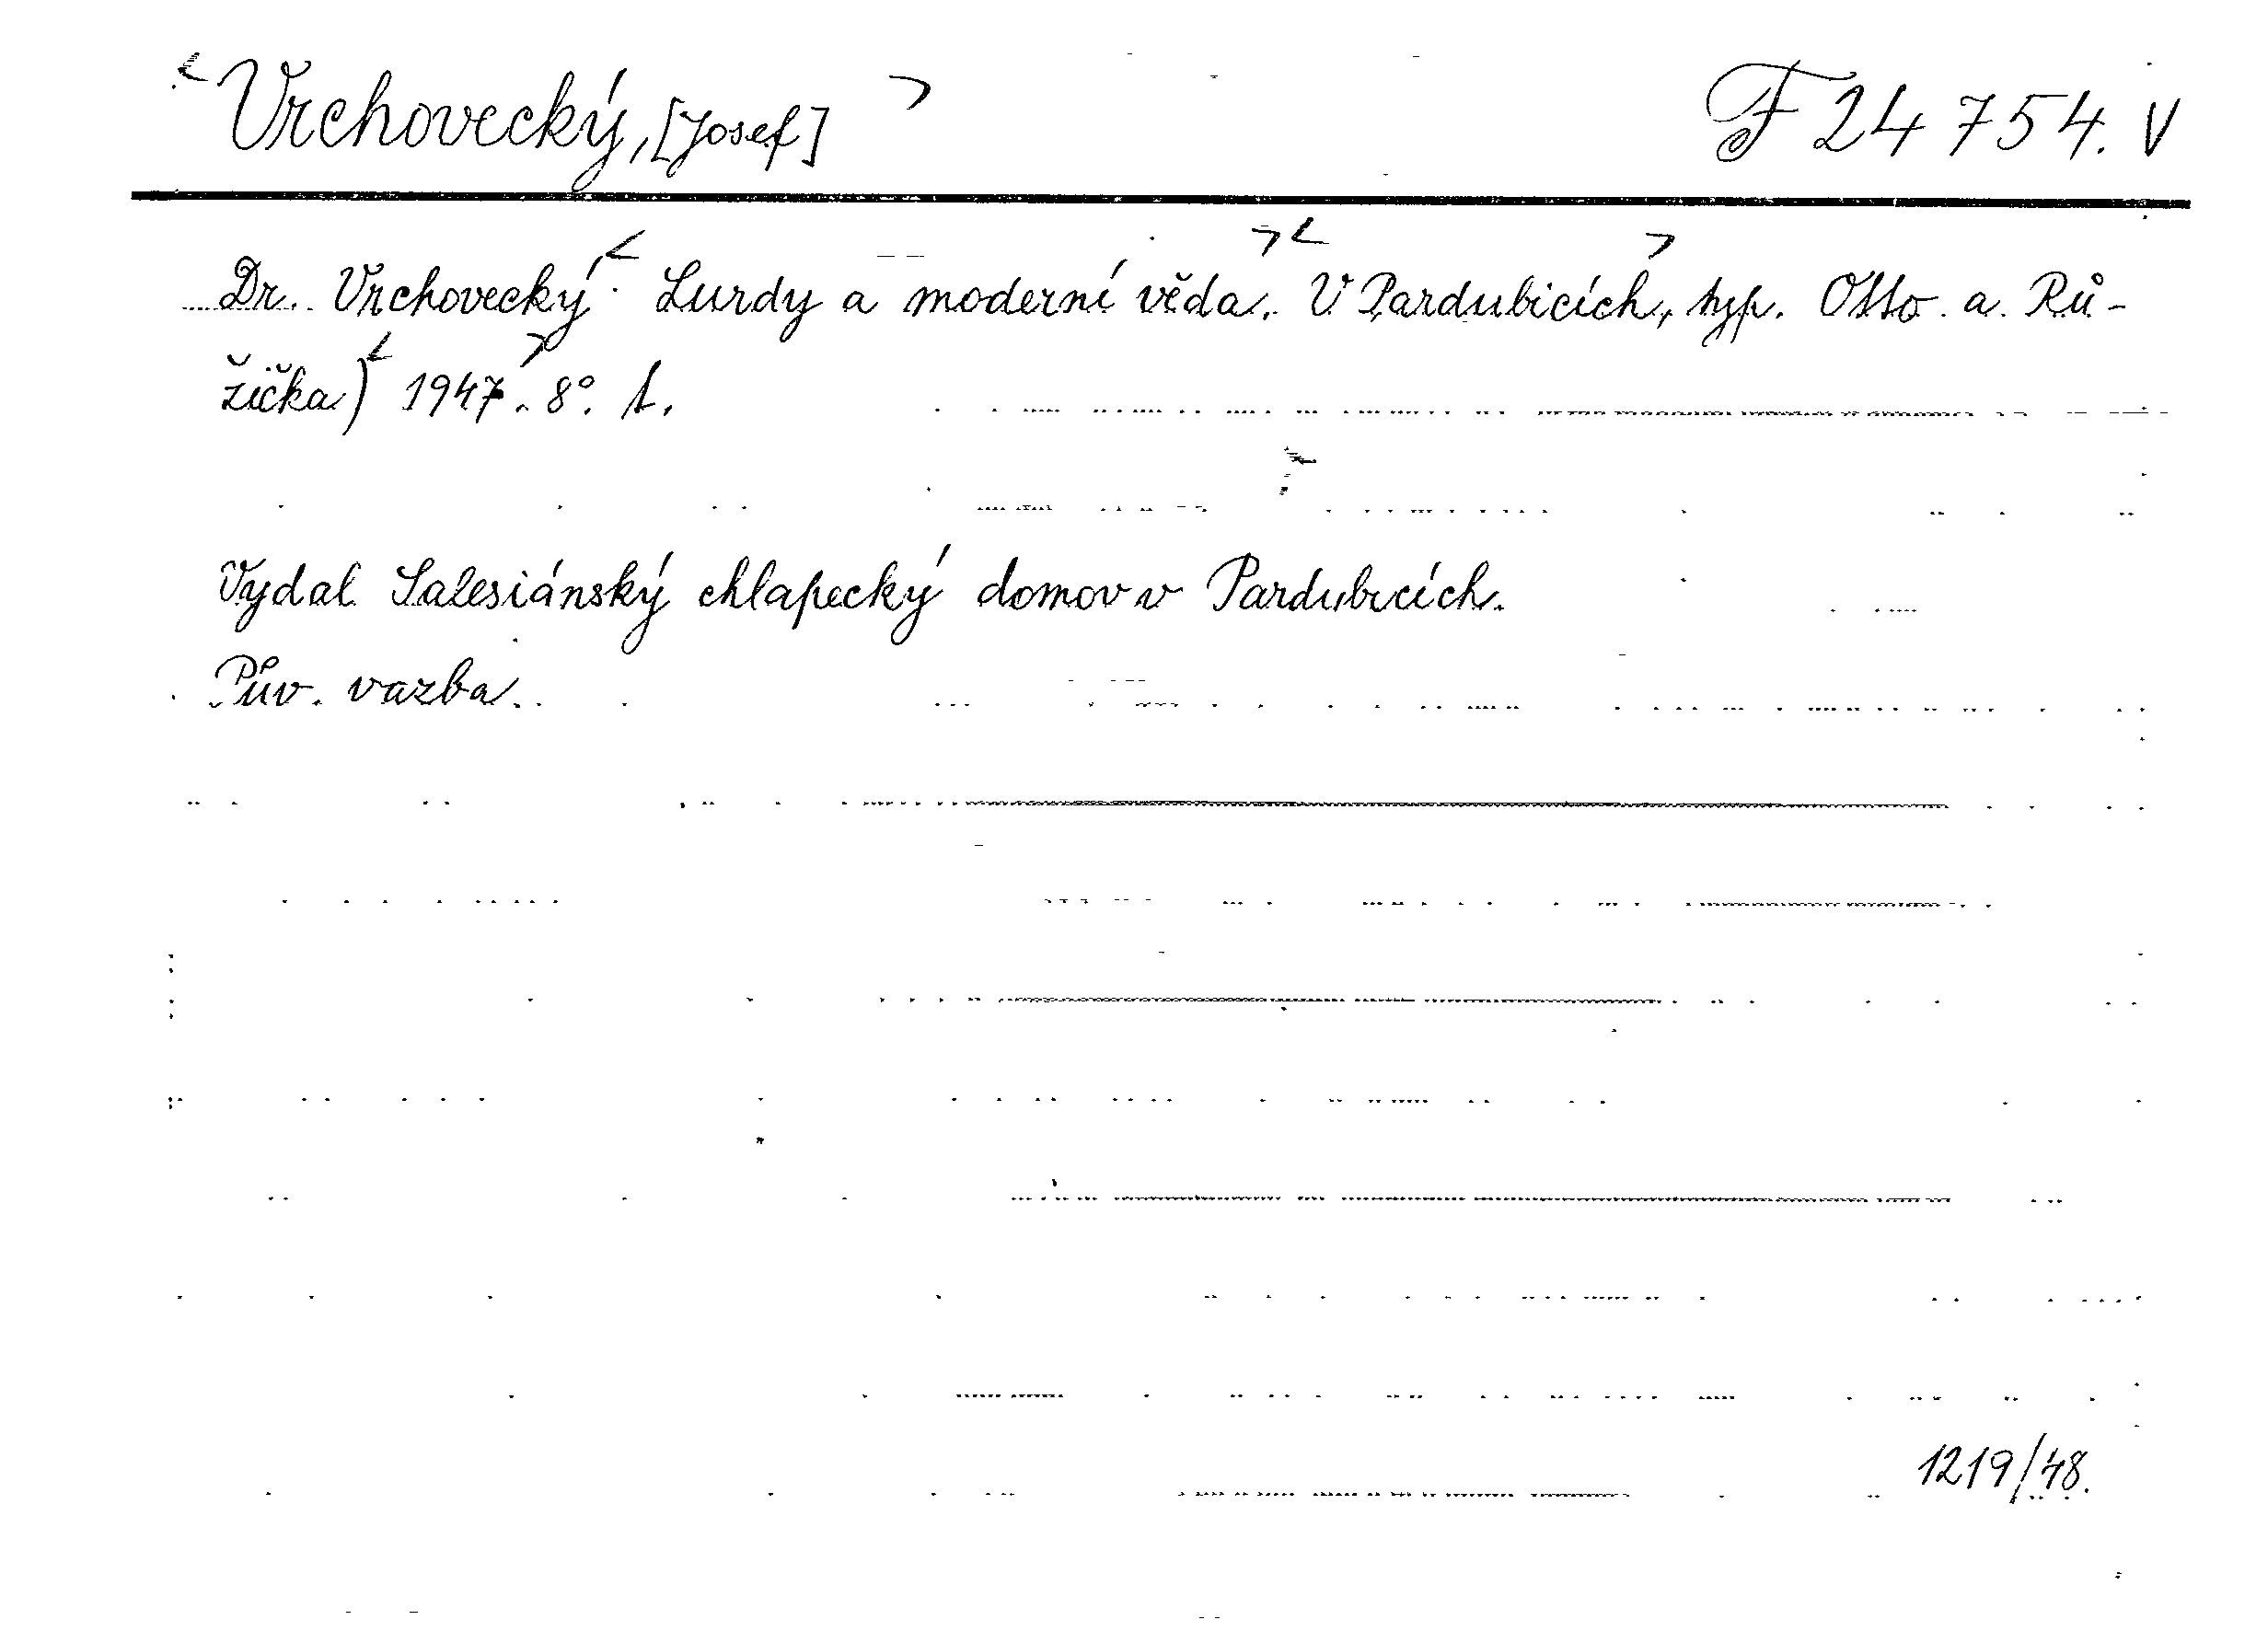 <Vrchovecký, [Josef]> F 24754. V
Dr. Vrchovecký:< Lurdy a moderní věda.>< V Pardubicích,> typ. Otto a Rů-
žička)< 1947>. 8°.
Vydal Salesiánský chlapecký domov v Pardubicích.
Pův. vazba.
1219/48.